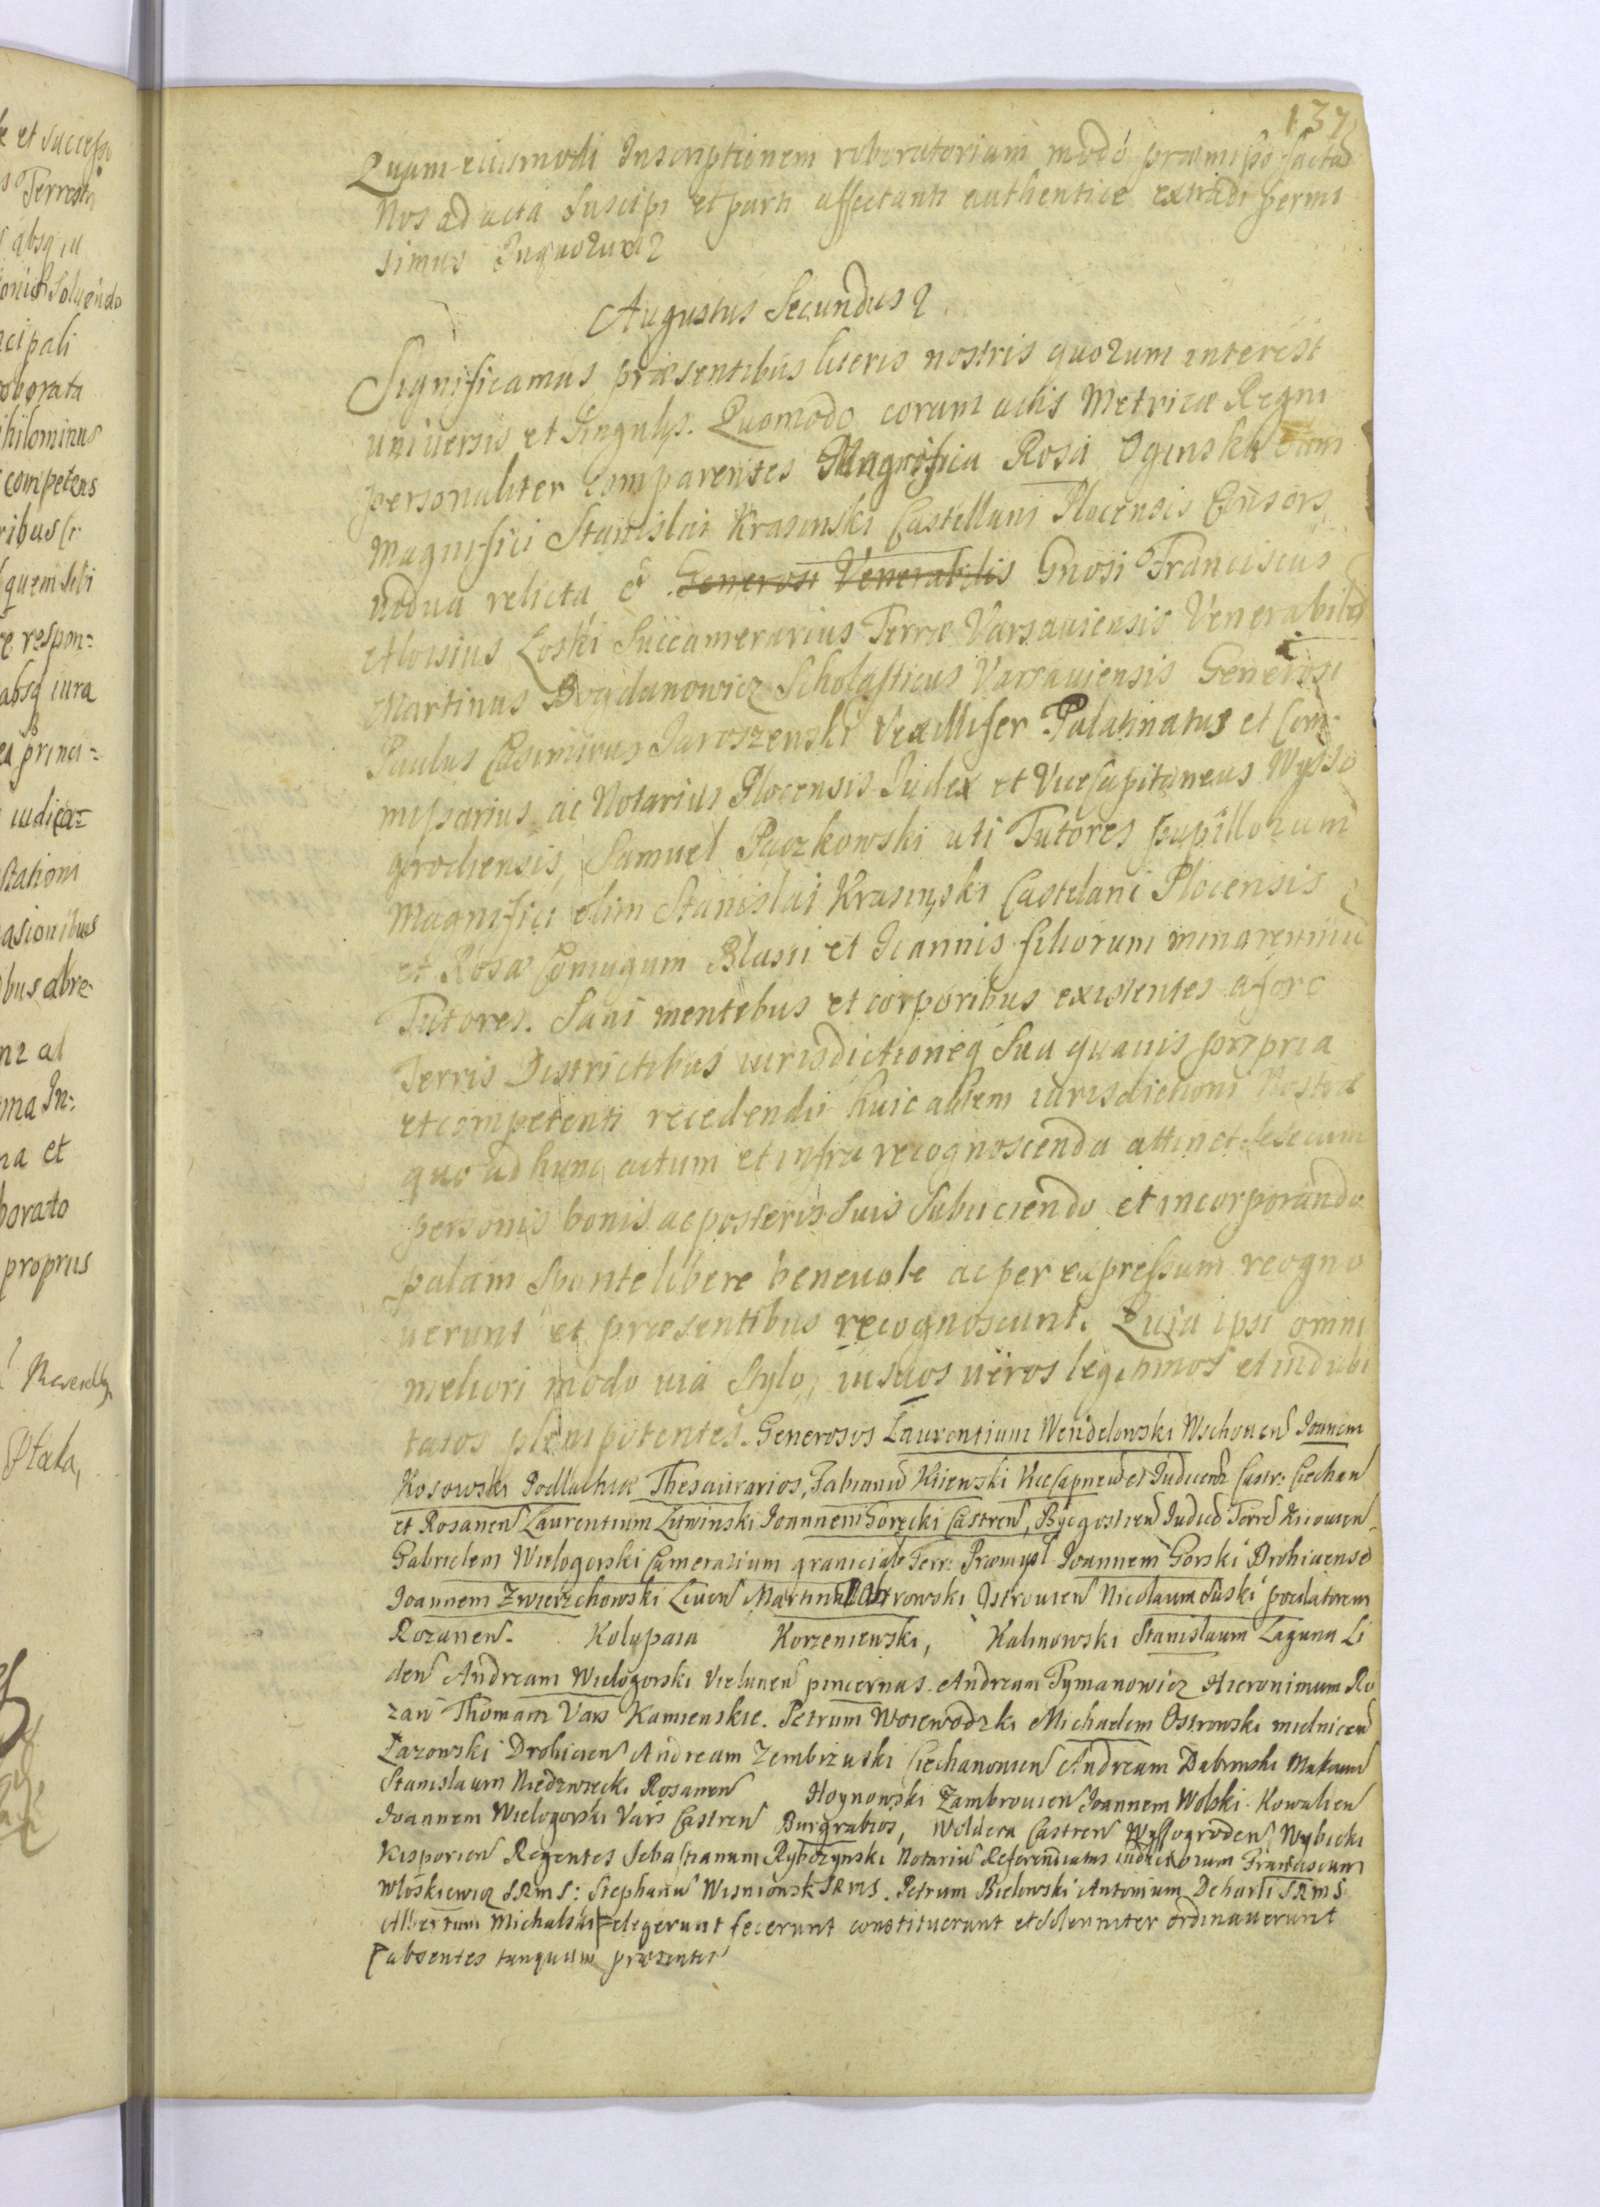 137
Quam eiusmodi Inscriptionem roboratoriam modo præmisso factam
Nos ad acta suscipi et parti affectanti authentice extradi permi
simus In quorum
Augustus Secundus
Significamus præsentibus literis nostris quorum interest
universis et singulis. Quomodo coram actis Metricæ Regni
personaliter comparentes Magnifica Rosa Oginska olim
Magnifici Stanislai Krasinski Castellani Plocensis Consors
vidua relicta et Generosi Venerabilis Gnosi Franciscus
Aloisius Łoski Succamerarius Terræ Varsaviensis Venerabilis
Martinus Bogdanowicz Scholasticus Varsaviensis Generosi
Paulus Casimirus Jaroszewski Vexillifer Palatinatus et Com
missarius ac Notarius Plocensis Judex et ViceCapitaneus Wysso
grodiensis, Samuel Paczkowski uti Tutores pupillorum
Magnifici olim Stanislai Krasinski Castelani Plocensis
et Rosæ Coniugum Blasii et Ioannis filiorum minorennium
Tutores. Sani mentibus et corporibus existentes a foro
Terris Districtibus iurisdictioneq sua quavis propria
et competenti recedendo huic autem iurisdictioni Nostræ
quo ad hunc actum et infra recognoscenda attinet sese cum
personis bonis ac posteris suis subiiciendo et incorporando
palam sponte libere benevole ac per expressum recogno
verunt et præsentibus recognoscunt. Quia ipsi omni
meliori modo via stylo, iu suos veros legitimos et indubi
tatos plenipotentes. Generosos Laurentium Wendelowski Wschonen Ioannem
Kosowski Podlachiæ Thesaurarios, Fabianu Kiienski ViceCapneu et Iudicem Castr: Ciechan
et Rosanen Laurentium Litwinski Ioannem Gorecki Castren, Bydgostien Iudice Terre Kiiovien
Gabrielem Wielogorski Camerarium granicialẽ Terr: Præmysl Ioannem Gorski Drohicense
Ioannem Zwierzchowski Liven Martinu Ostrowski Ostrovien Nicolaum Suski pocilatorem
Rozanen. Kolypaia Korzeniewski, Kalinowski Stanislaum Laguna Li
den Andream Wielogorski Vielunen pincernas. Andream Tymanowicz Hieronimum Ro
zan Thomam Vars Kamienskie. Petrum Woiewodzki Michaelem Ostrowski mielnicen
Łazowski Drohicien Andream Zembrzuski Ciechanovien Andream Dabrowski Makovien
Stanislaum Niedzwiecki Rosanen Hoynowski Zambrovien Ioannem Wolski Kowalien
Ioannem Wielogorski Vars Castren Burgrabios, Woldera Castren Wyssogroden, Wybicki
Kisporien Regentes Sebastianum Rybczynski Notariu Referendiatus iudiciorum Franciscum
Wloskiewicz SRMS: Stephanu Wisnionsk SRMS. Petrum Bielowski Antonium Deharli SRMS
Albertum Michalski elegerunt fecerunt constituerunt et solenniter ordinaverunt
absentes tanquam præsentes